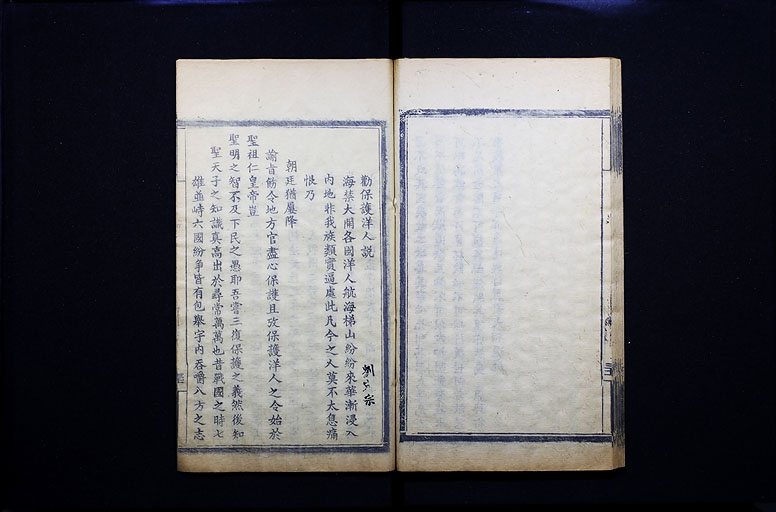 勸保護洋人説
海禁大開各國洋人航海梯山紛紛來華漸浸入
内地非我族類實逼處此凡今之人莫不太息痛
恨乃
朝廷猶屢降
諭旨飭令地方官盡心保護且攷保護洋人之令始於
聖祖仁皇帝豈
聖明之智不及下民之愚耶吾嘗三復保護之義然後知
聖天子之知識真高出於尋常萬萬也昔戰國之時七
雄並峙六國紛爭皆有包舉宇内吞嚼八方之志